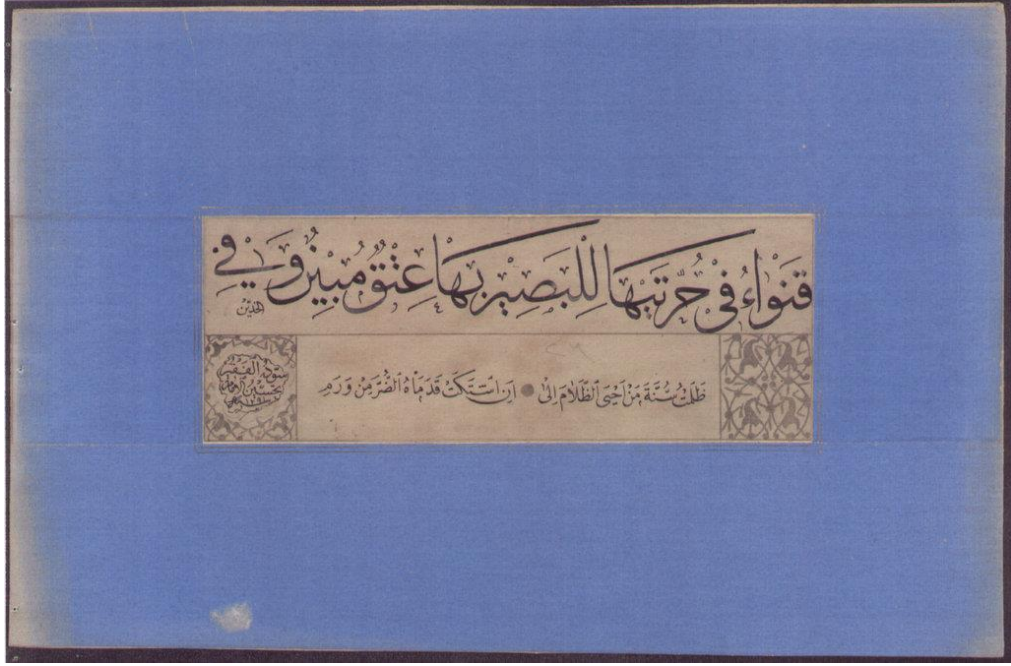 قَنْوَاءُ فِي حُرَّتَيْهَا لِلْبَصِيْرِ بِهَا عِتْقٌ مُبِيْنٌ وَفِي
الخدّين
ظَلَمْتُ سُنَّةَ مَنْ اَحْيَى الظَّلَامَ اِلٰى ● اَنِ اشْتَكَتْ قَدَمَاهُ الضُّرَّ مِنْ وَرَمِ
سوّده الفقير